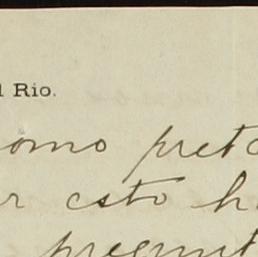 l Rio.
omo preto
r esto h
pregunt